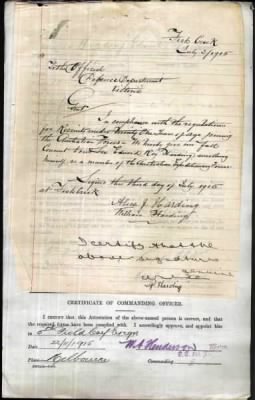 Fish Creek
July 3/1915
To the Official
Defence Department
Victoria
In compliance with the regulations
for Recruits under Twenty One Years of age joining
the Australian Forces - We hereby give our full
Consent to our Son Edmund Roy Harding enrolling
himself as a member of the Australian Expeditionary Force
Signed this third day of July 1915
at Fish Creek
Alice J. Harding
William Harding
I certify that the
above signatures
genuine
Harding
CERTIFICATE OF COMMANDING OFFICER.
I CERTIFY that this Attestation of the above-named person is correct, and that
the required forms have been complied with. I accordingly approve, and appoint him
to
Date 22/11/1915
Place Melbourne
Commanding